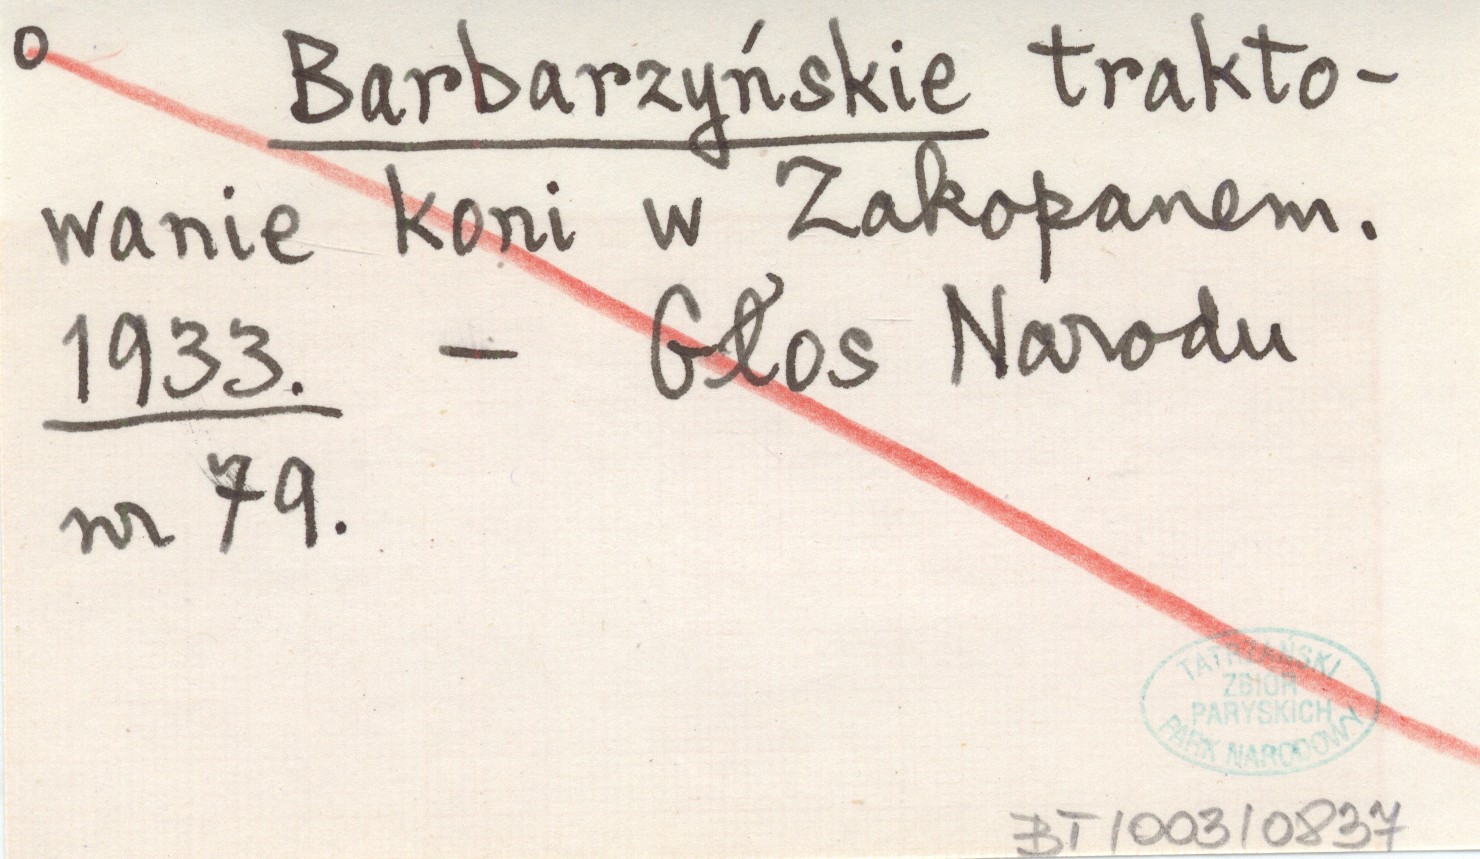 o Barbarzyńskie trakto-
wanie koni w Zakopanem.
1933. - Głos Narodu
nr 79.
TATRZAŃSKI
ZBIÓR
PARYSKICH
PARK NARODOWY
BT/003/0837